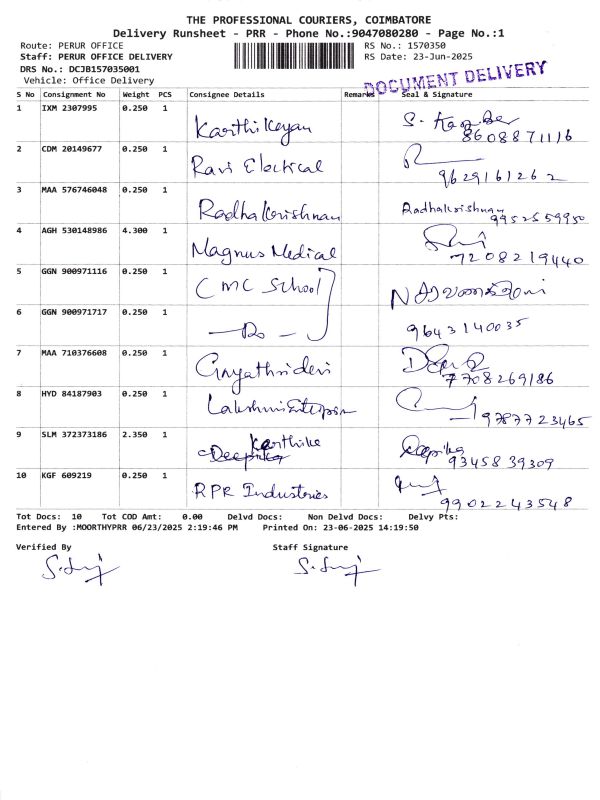 THE PROFESSIONAL COURIERS, COIMBATORE
Delivery Runsheet - PRR - Phone No.:9047080280 - Page No.:1
Route: PERUR OFFICE RS No.: 1570350
Staff: PERUR OFFICE DELIVERY RS Date: 23-Jun-2025
DRS No.: DCJB157035001
Vehicle: Office Delivery
DOCUMENT DELIVERY
S No Consignment No Weight PCS Consignee Details Remarks Seal & Signature
1 IXM 2307995 0.250 1 Karthikeyan
8608871116
2 CDM 20149677 0.250 1 Ravi Electical
9629161262
3 MAA 576746048 0.250 1 Radhakrishnan Radhakrishnan
9952559950
4 AGH 530148986 4.300 1 Magnus Medical
7208219440
5 GGN 900971116 0.250 1 CMC School
6 GGN 900971717 0.250 1 - Do - 9643140035
7 MAA 710376608 0.250 1 Gayathri devi
7708269186
8 HYD 84187903 0.250 1 Lakshmi Enterprises
9787723465
9 SLM 372373186 2.350 1 Karthika
Deepika Deepika
9345839309
10 KGF 609219 0.250 1 RPR Industries
9902243548
Tot Docs: 10 Tot COD Amt: 0.00 Delvd Docs: Non Delvd Docs: Delvy Pts:
Entered By :MOORTHYPRR 06/23/2025 2:19:46 PM Printed On: 23-06-2025 14:19:50
Verified By Staff Signature